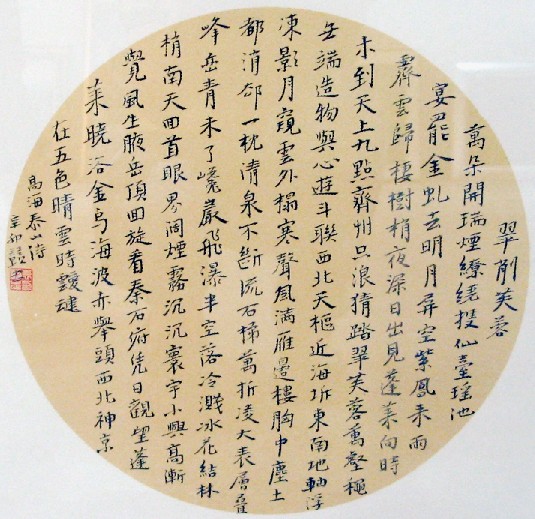 翠削芙蓉
萬朵開瑞煙繚繞擁仙臺瑤池
宴罷金虬去明月屏空紫鳳來雨
霽雲歸棲樹梢夜深日出見蓬萊向時
未到天上九點齊州只浪猜踏翠芙蓉萬壑穐
无端造物與心遊斗聯西北天樞近海坼東南地軸浮
凍影月窺雲外榻寒聲風滿雁邊樓胸中塵土
都消卻一枕清泉不斷流石梯萬折凌大表層疊
峰岳青未了巉巖飛瀑半空落冷濺冰花結林
梢南天回首眼界闊煙霧沉沉寰宇小興高漸
覺風生腋岳頂回旋看秦石府凭日觀望蓬
萊曉浴金烏海波赤舉頭西北神京
在五色晴雲時靉靆
泰山詩
辛卯